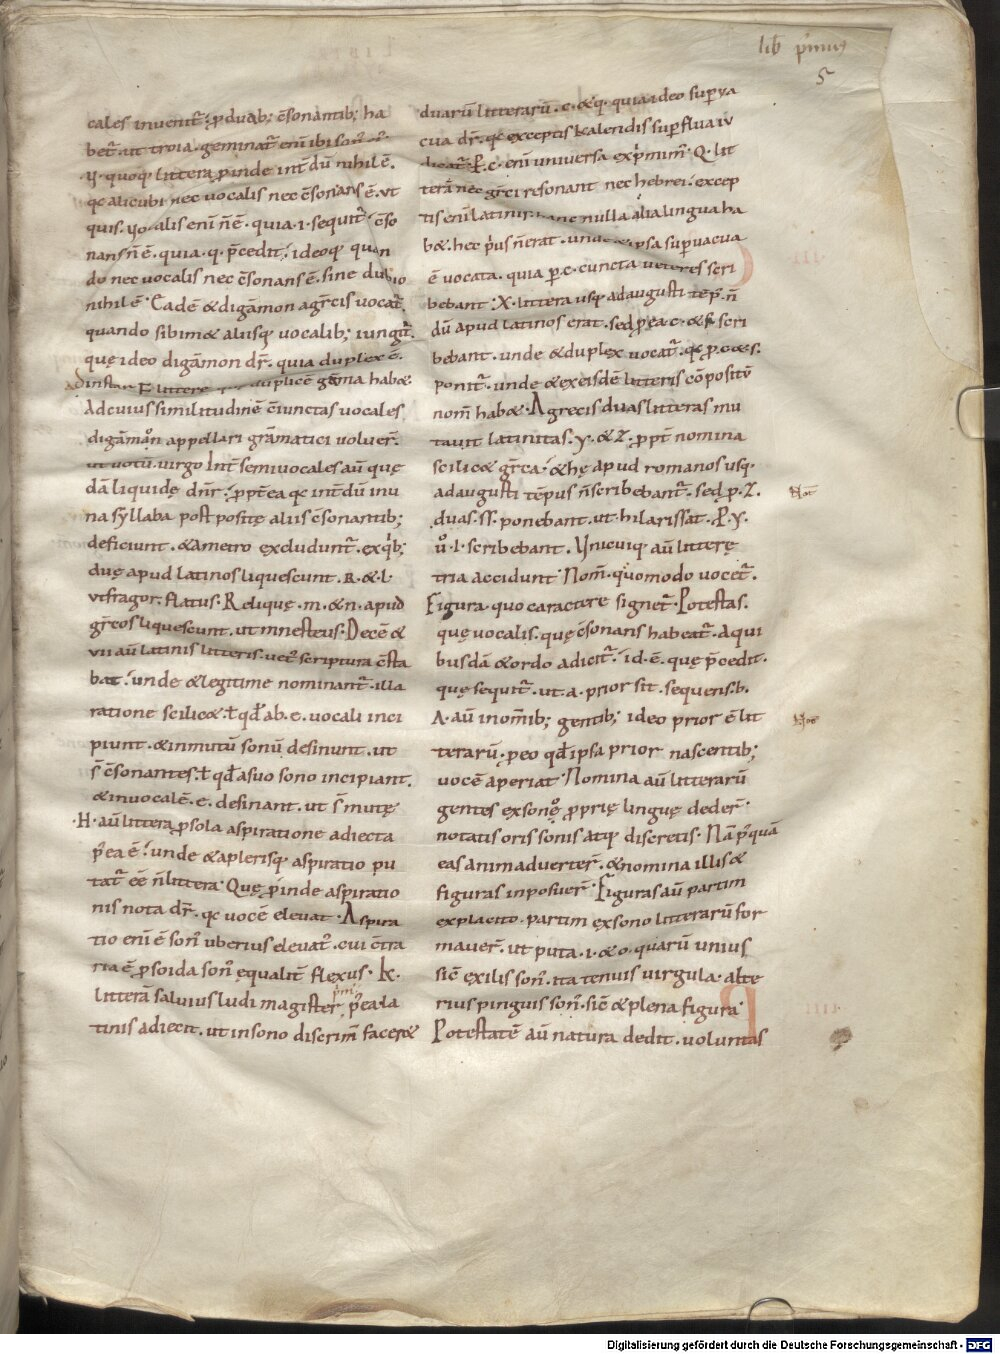 lib̄ p̄mus
5
cales inuenit̄᷑; ꝑ duab; c̄sonantib; ha
bet̄᷑. ut troia. geminat̄᷑ eni᷑ ibi son᷑
.y. quoq; littera ꝑinde int̄dū nihil ē.
qc alicubi nec uocalis nec c̄sonans ē. vt
quis. uocalis eni᷑ n̄ ē. quia .i. sequit᷑. c̄so
nans n̄ ē. quia .q. p̄cedit᷑; ideoq; quan
do nec uocalis nec c̄sonans ē. sine dubio
nihil ē. Eadē & digāmon a gr̄cis uocat᷑.
quando sibimet aliisq; uocalib; iungit᷑.
quę ideo digāmon dr̄. quia duplex ē.
ad instar F littere duplicē gāma habet
Ad cuius similitudinē c̄iunctas uocales
digāmon appellari grāmatici uoluer̄.
ut uotū. virgo Int̄ semiuocales aū quę
dā liquidę dn̄r; ꝓpt̄ea qc int̄dū in u
na syllaba post positę aliis c̄sonantib;
deficiunt. & a metro excludunt᷑. ex qͥb;
duę apud latinos liquescunt. R. & .l.
vt fragor. flatus. Reliquę .m. & .n. apud
gr̄cos liquescunt. ut mnesteus. Decē &
vii aū latinis litteris. uet᷑ scriptura c̄sta
bat; unde & legitime nominant᷑. illa
ratione scilicet. ł qd̄ ab .e. uocali inci
piunt. & in mutū sonū desinunt. ut
s̄ c̄sonantes. ł qd̄ a suo sono incipiant.
& in uocalē .e. desinant. ut s̄ mutę
.H. aū littera ꝓ sola aspiratione adiecta
p̄ea ē; unde & a plerisq; aspiratio pu
tat᷑ ēē n̄ littera. Quę ꝓinde aspiratio
nis nota dr̄. qc uocē eleuat. Aspira
tio eni᷑ ē son᷑ uberius eleuat᷑. cui c̄tra
ria ē ꝓsoida son᷑ ęqualit̄ flexus. K.
litterā saluius ludi magister pm᷑ p̄ea la
tinis adiecit. ut in sono discrim̄ facer&
duarū litterarū .c. & q. quia ideo superua
cua dr̄. qc exceptis kalendis superflua iu
dicat᷑. P .c. eni᷑ uniuersa exp̄mim᷑. Q. lit
terā nec gr̄ci resonant nec hebrei. excep
tis eni᷑ latinis hanc nulla alia lingua ha
b&. hec p̄us n̄ erat. unde & ipsa superuacua
ē uocata. quia ꝑ .c. cuncta ueteres scri
bebant. X. littera usq; ad augusti tēp᷑ n̄
dū apud latinos erat. sed ꝓ ea .c. & s. scri
bebant. unde & duplex uocat᷑. qc ꝓ .c. & s.
ponit᷑. unde & ex eisdē litteris cōpositū
nom̄ hab&. A grecis duas litteras mu
tauit latinitas. y. & z. ꝓpt᷑ nomina
scilic& gr̄ca. & hę apud romanos usq;
ad augusti tēpus n̄ scribebant᷑. sed ꝓ .z.
duas .ss. ponebant. ut hilarissat. P .y.
u᷑ .l. scribebant. Unicuiq; aū litterę
tria accidunt Nom̄. quomodo uocet᷑.
Figura. quo caractere signet᷑. Potestas.
quę uocalis. quę c̄sonans habeat᷑. A qui
busdā & ordo adicit᷑. id. ē. quę p̄cedit.
quę sequit᷑. ut .a. prior sit. sequens .b.
A. aū in om̄ib; gentib; ideo prior ē lit
terarū. ꝑeo qd̄ ipsa prior nascentib;
uocē aperiat Nomina aū litterarū
gentes ex sono ꝓprię linguę deder̄.
notatis oris sonis atq; discretis. Nā p᷑quā
eas animaduerter̄. & nomina illis &
figuras inposuer̄. Figuras aū partim
ex placito. partim ex sono litterarū for
mauer̄. ut puta .i. & o. quarū unius
sic̄ exilis son᷑. ita tenuis uirgula. alte
rius pinguis son᷑. sic̄ & plena figura.
Potestatē aū natura dedit. uoluntas
Not̄
Not̄
Digitalisierung gefördert durch die Deutsche Forschungsgemeinschaft - DFG